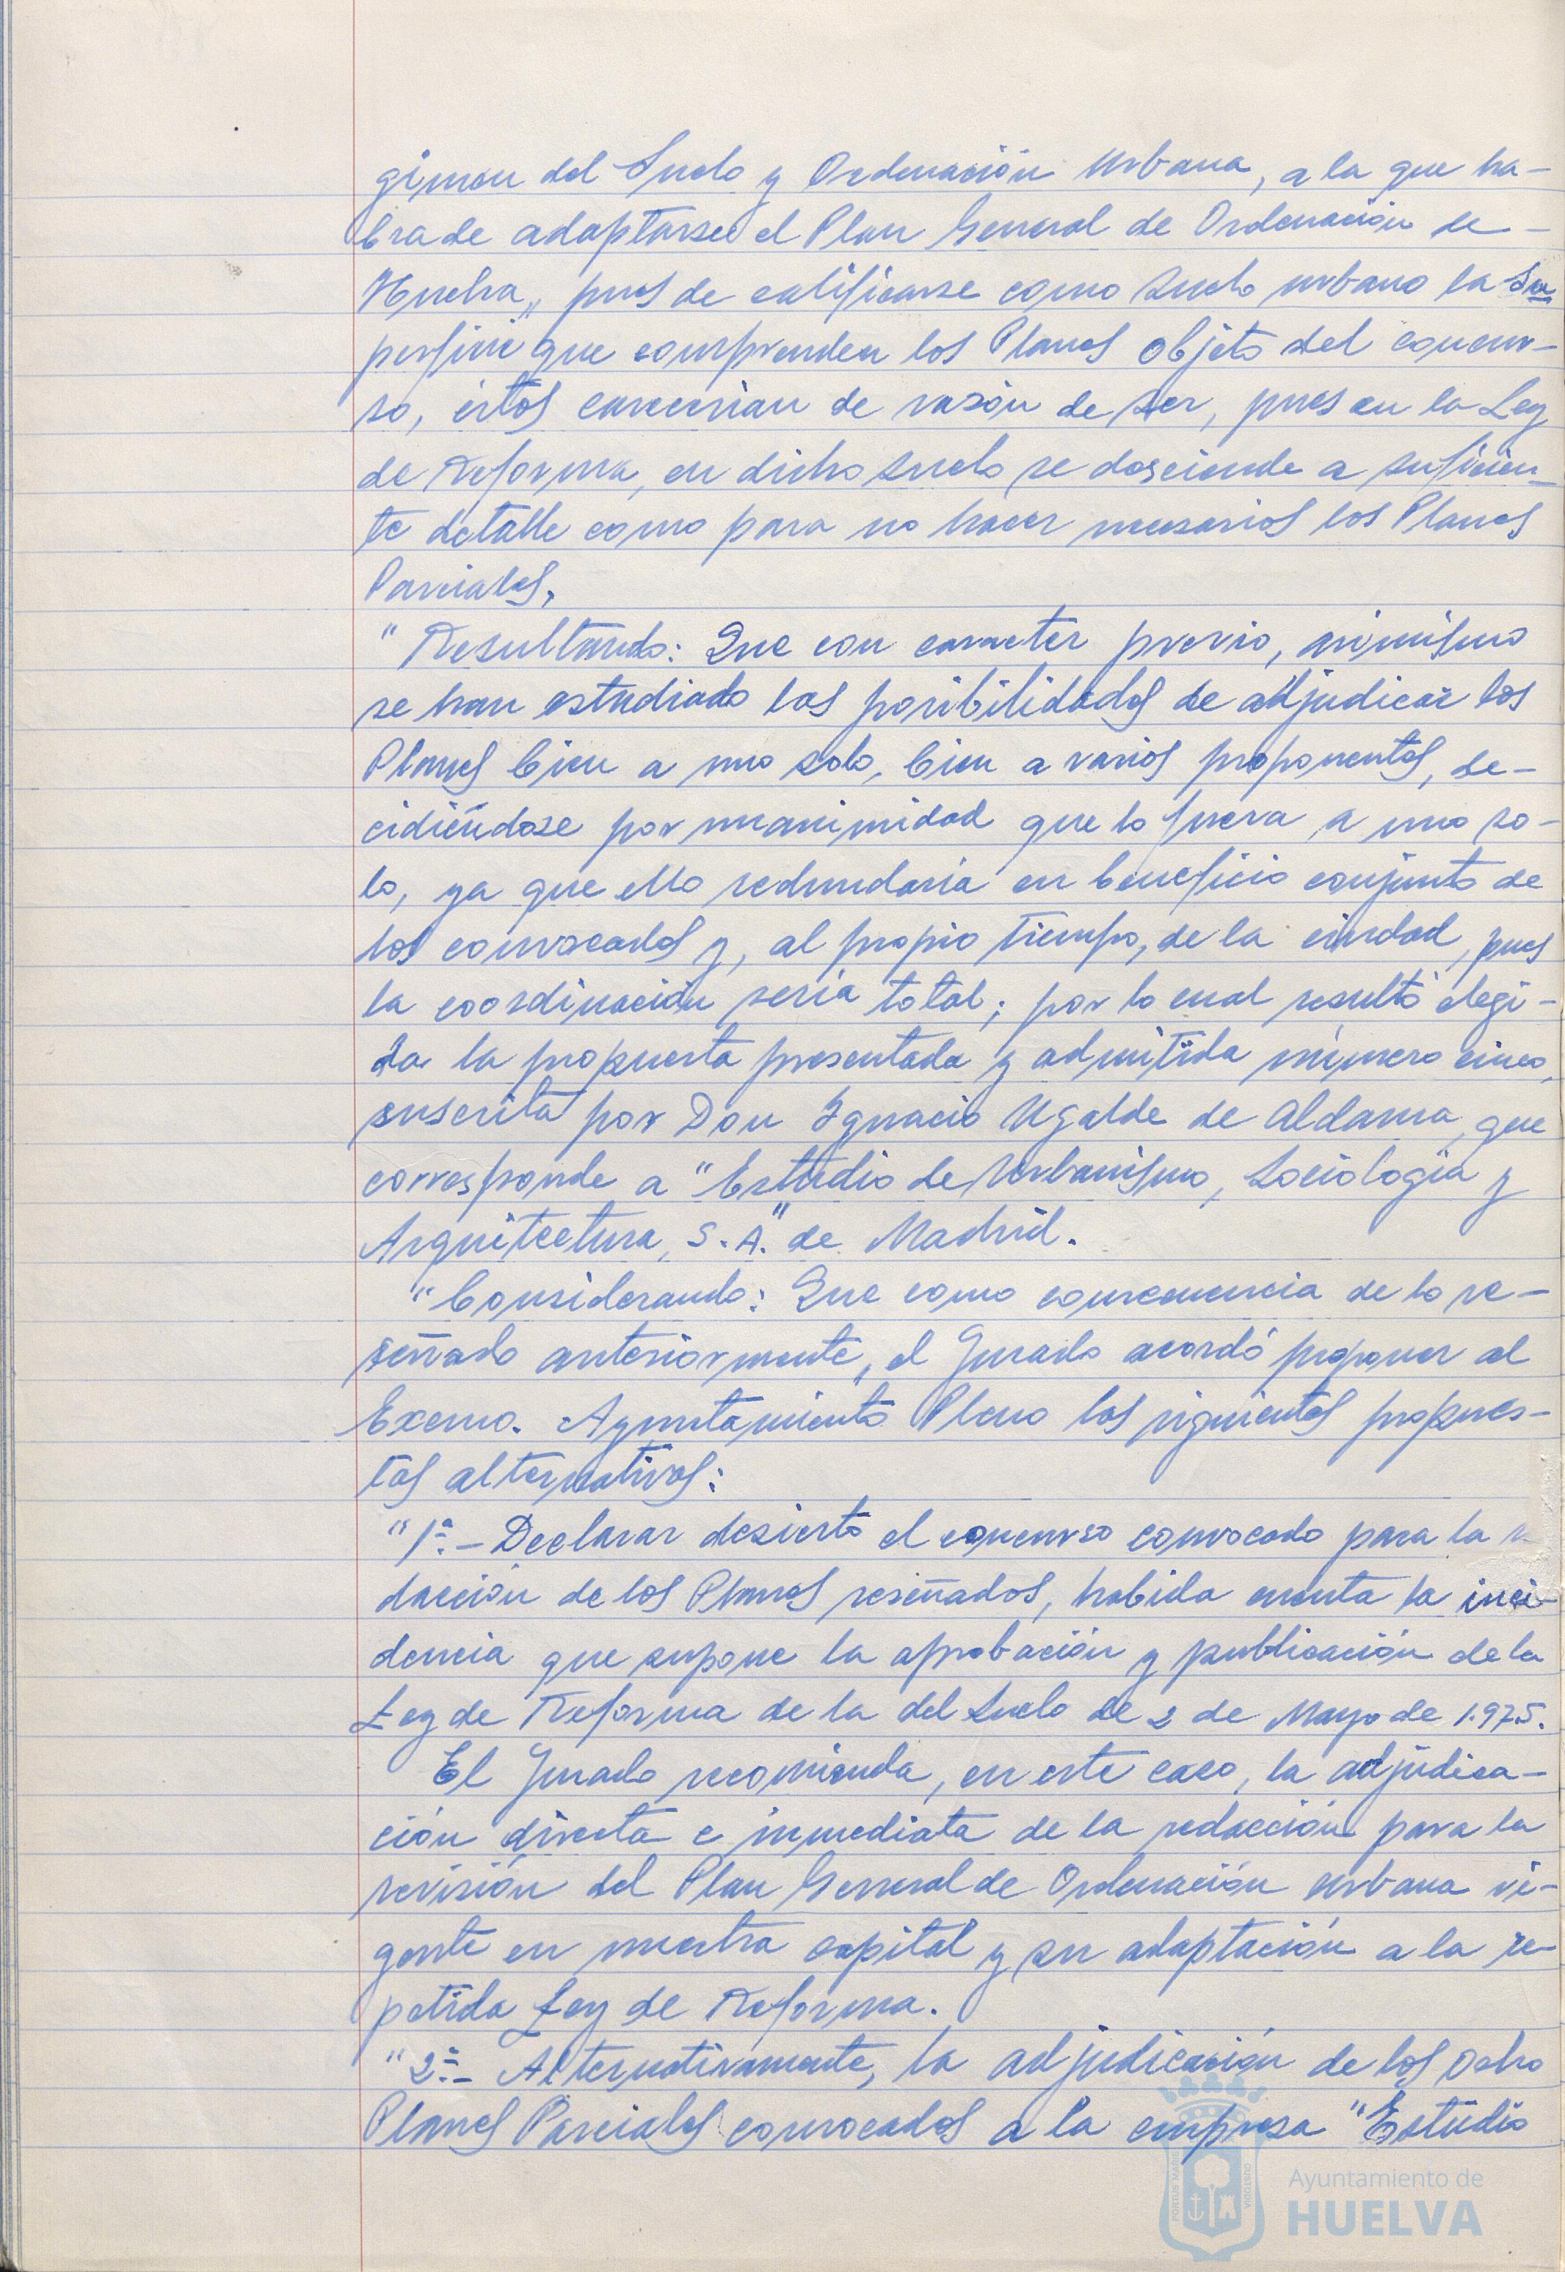 gimen del Suelo y Ordenación Urbana, a la que ha-
bra de adaptarse el Plan General de Ordenación de
Huelva, pues de calificarse como suelo urbano la su
perficie que comprenden los Planes objeto del concur-
so, éstos carecerian de razón de ser, pues en la Ley
de Reforma, en dicho suelo se desciende a suficien-
te detalle como para no hacer necesarios los Planes
Parciales.
"Resultando: Que con caracter previo, asimismo
se han estudiado las posibilidades de adjudicar los
Planes bien a uno solo, bien a varios proponentes, de-
cidiéndose por unanimidad que lo fuera a uno so-
lo, ya que ello redundaría en beneficio conjunto de
los convocados y, al propio tiempo, de la ciudad, pues
la coordinación sería total; por lo cual resultó elegi-
da la propuesta presentada y admitida número cinco,
suscrita por Don Ignacio Ugalde de Aldama, que
corresponde a "Estudio de Urbanismo, Sociología y
Arquitectura, S.A." de Madrid.
"Considerando: Que como consecuencia de lo re-
señado anteriormente, el Jurado acordó proponer al
Excmo. Ayuntamiento Pleno las siguientes propues-
tas alternativas:
"1ª.- Declarar desierto el concurso convocado para la
dacción de los Planes reseñados, habida cuenta la inci-
dencia que supone la aprobación y publicación de la
Ley de Reforma de la del Suelo de 2 de Mayo de 1.975.
El Jurado recomienda, en este caso, la adjudica-
ción directa e inmediata de la redacción para la
revisión del Plan General de Ordenación Urbana vi-
gente en nuestra capital y su adaptación a la re-
petida Ley de Reforma.
"2ª.- Alternativamente, la adjudicación de los ocho
Planes Parciales convocados a la empresa "Estudio
Ayuntamiento de
HUELVA